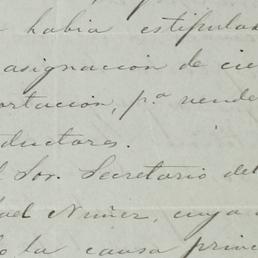 habia estipulad
asignacion de cie
ortacion, pª vende
ductores.
l Sor. Secretario del
ael Nuñez, cuya
o la causa princ